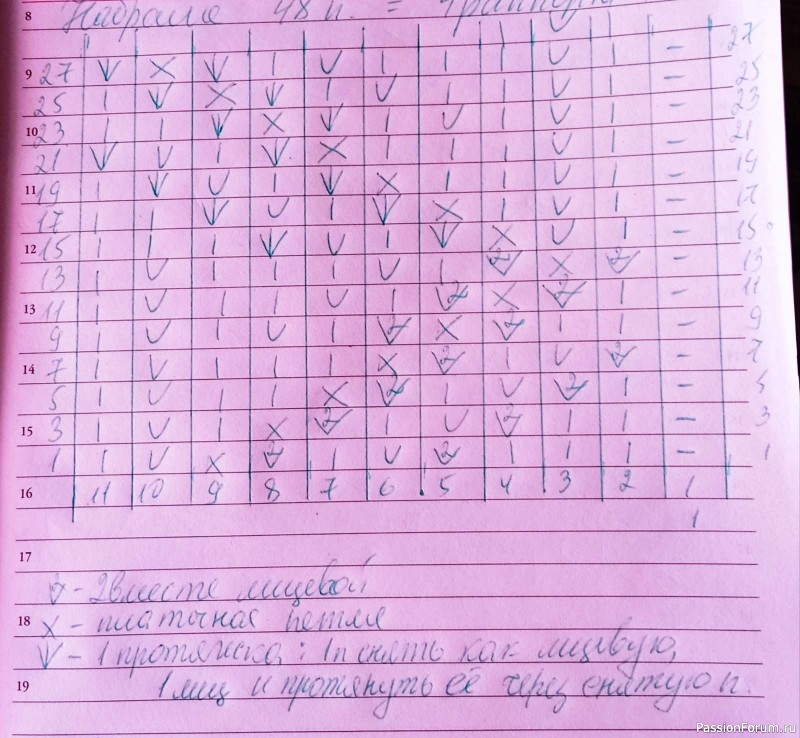 8 Набрала 48 п. =
27
9 27 V X V I V I I I V I - 25
25 I V X V I V I I V I - 23
10 23 I I V X V I V I V I - 21
21 V V I V X I I I V I - 19
11 19 I V V I V X I I V I - 17
17 I I V V I V X I V I - 15
12 15 I I I V V I V X V I - 13
13 I V I I I V I 2 X 2 - 11
13 11 I V I I V I 2 X 2 I - 9
9 I V I V I 2 X 2 I I - 7
14 7 I V I I I X 2 I V 2 - 5
5 I V I I X 2 I V 2 I - 3
15 3 I V I X 2 I V 2 I I - 1
1 I V X 2 I V 2 I I I -
16 11 10 9 8 7 6 5 4 3 2 1
1
17
2 - 2 вместе лицевой
18 X - платочная петля
V - 1 протяжка: 1 п снять как лицевую,
19 1 лиц и протянуть её через снятую п.
PassionForum.ru